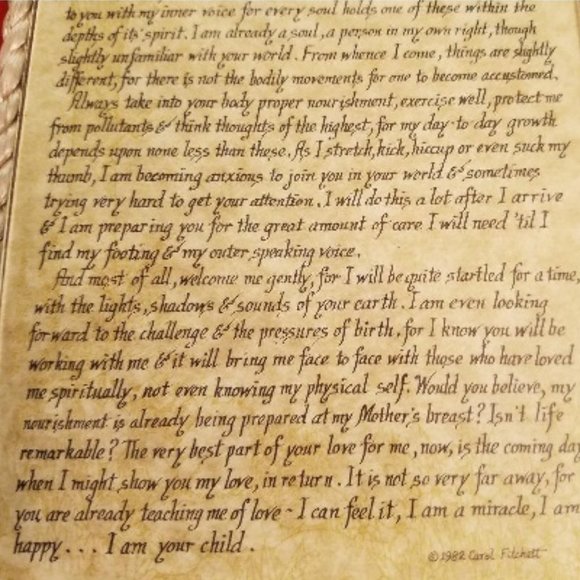 to you with my inner voice for every soul holds one of these within the
depths of its spirit. I am already a soul, a person in my own right, though
slightly unfamiliar with your world. From whence I come, things are slightly
different, for there is not the bodily movements for one to become accustomed.
Always take into your body proper nourishment, exercise well, protect me
from pollutants & think thoughts of the highest, for my day-to day growth
depends upon none less than these. As I stretch, kick, hiccup or even suck my
thumb, I am becoming anxious to join you in your world & sometimes
trying very hard to get your attention. I will do this a lot after I arrive
& I am preparing you for the great amount of care I will need 'til I
find my footing & my outer speaking voice.
And most of all, welcome me gently, for I will be quite startled for a time,
with the lights, shadows & sounds of your earth. I am even looking
forward to the challenge & the pressures of birth, for I know you will be
working with me & it will bring me face to face with those who have loved
me spiritually, not even knowing my physical self. Would you believe, my
nourishment is already being prepared at my Mother's breast? Isn't life
remarkable? The very best part of your love for me, now, is the coming day
when I might show you my love, in return. It is not so very far away, for
you are already teaching me of love - I can feel it, I am a miracle, I am
happy... I am your child.
©1982 Carol Fitchett